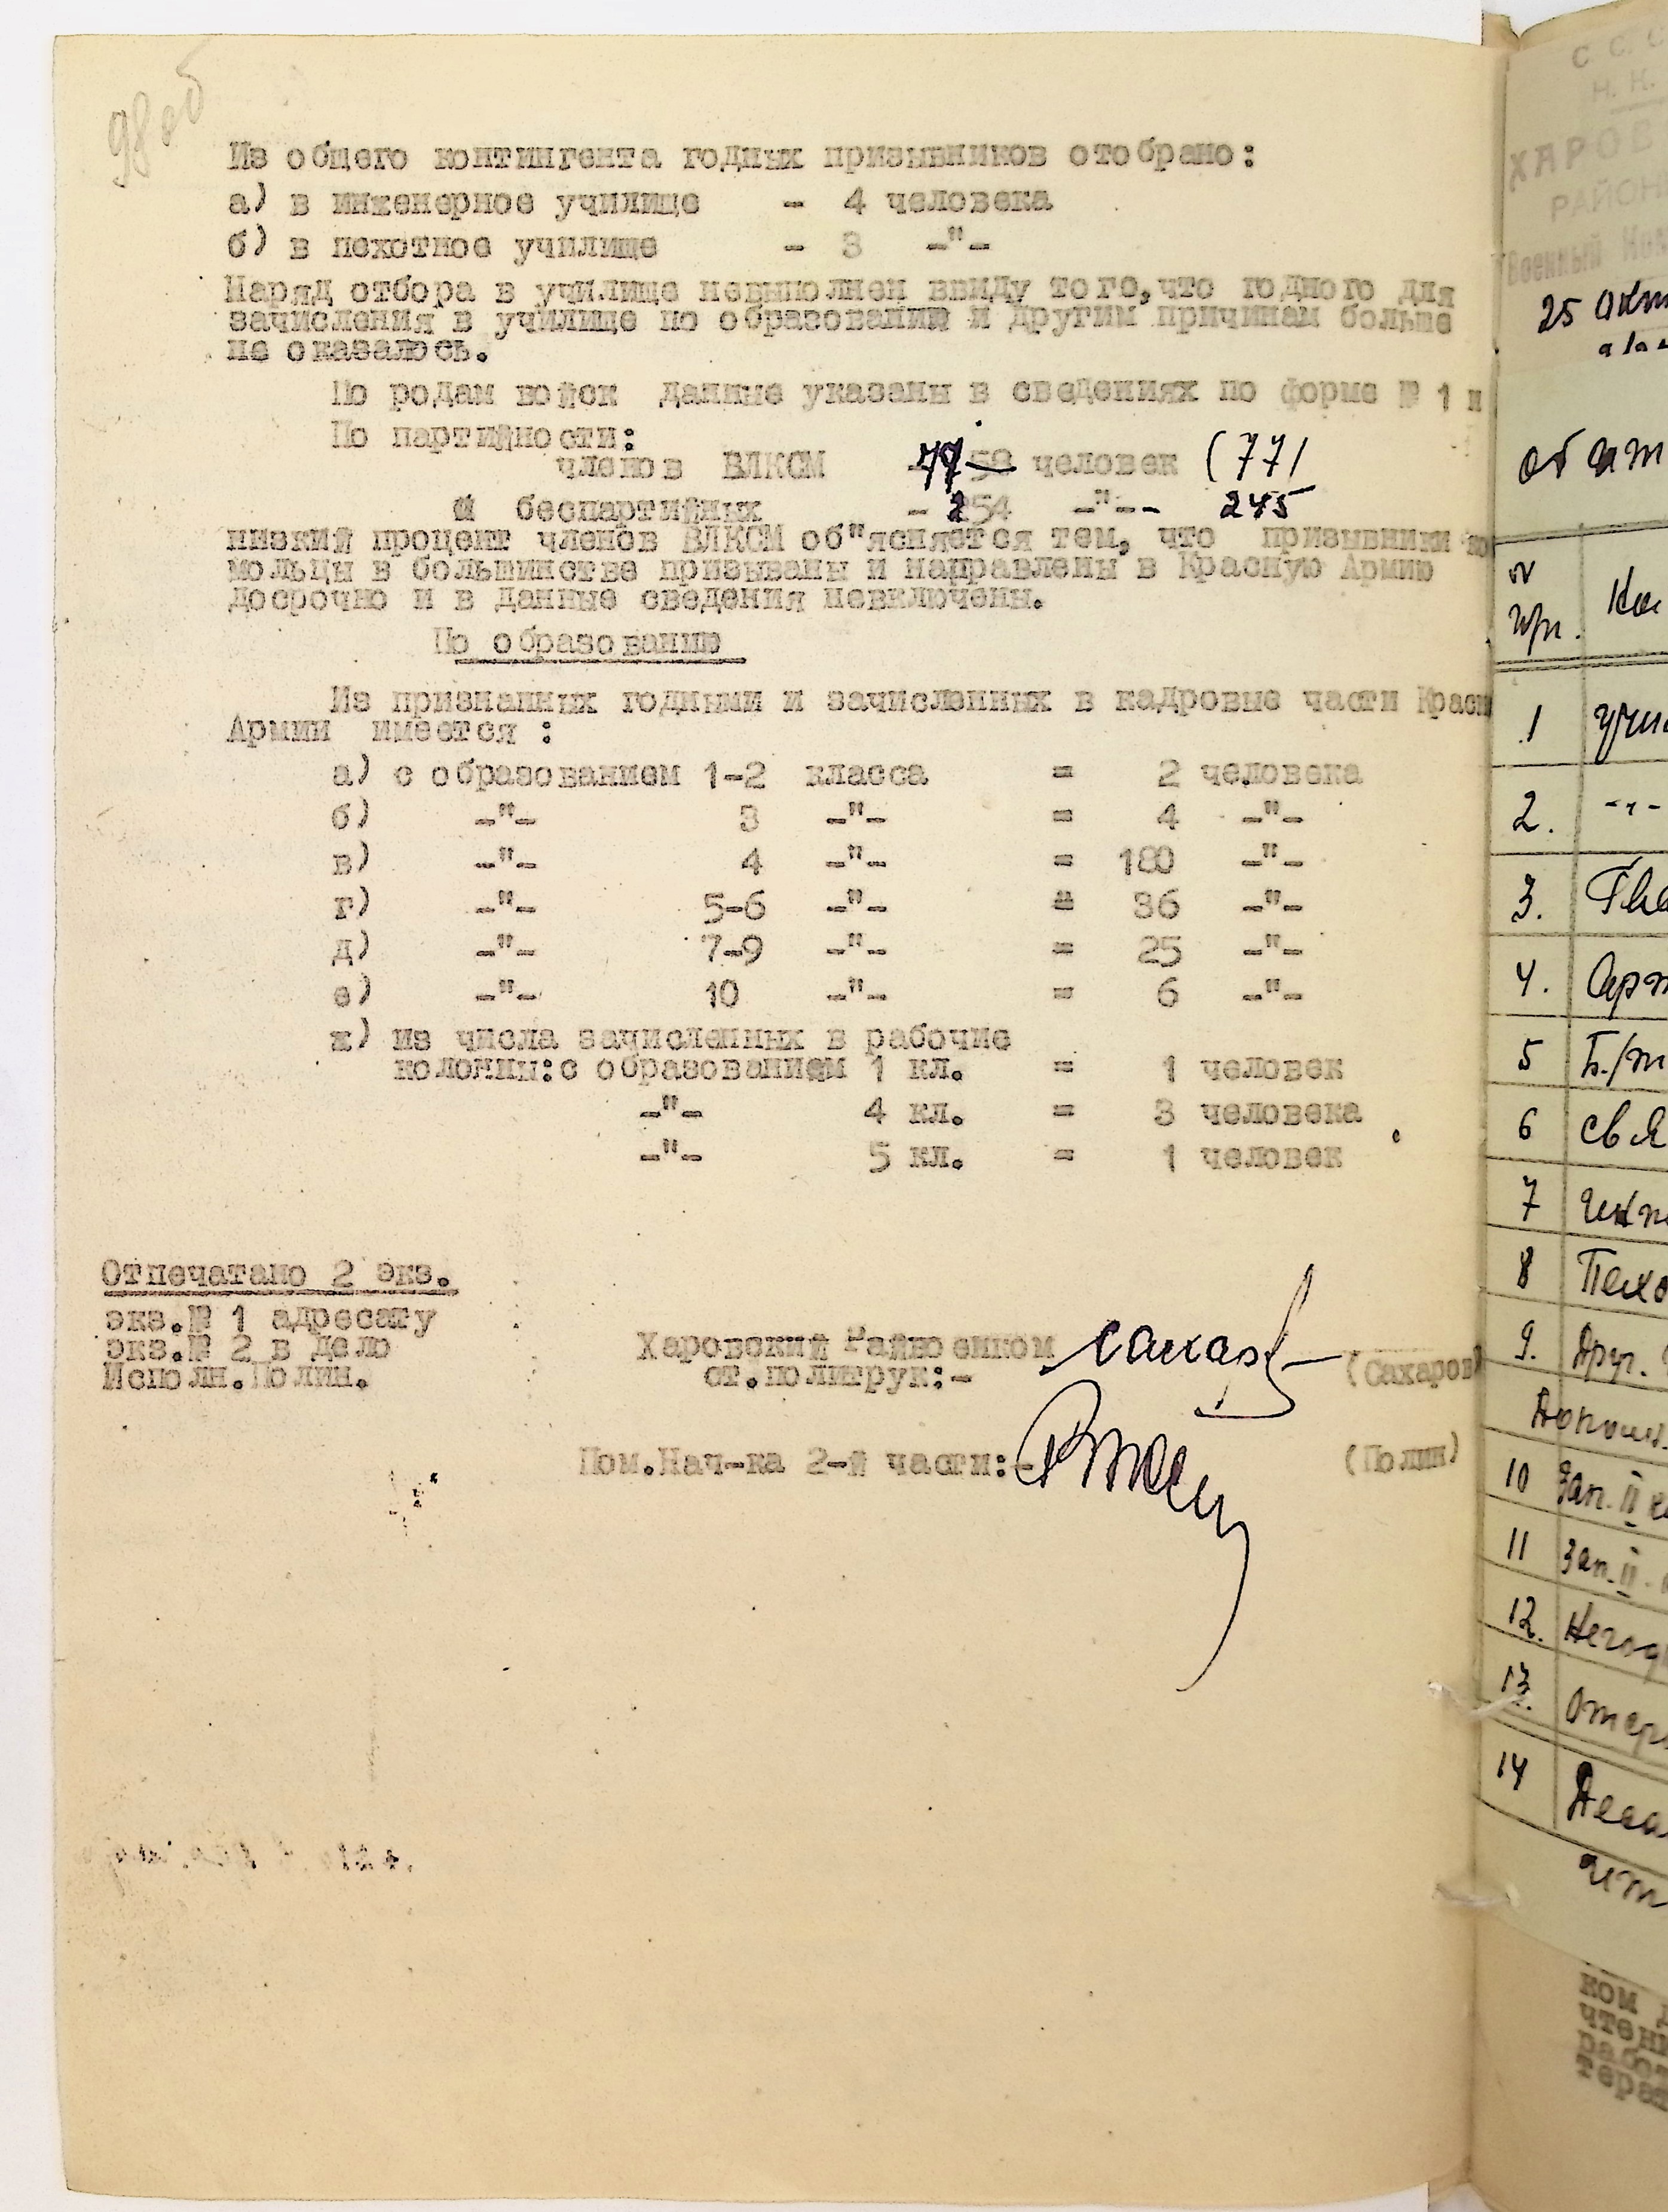 98 об
Из общего контингента годных призывников отобрано:
а) в инженерное училище - 4 человека
б) в пехотное училище - 3 -"-
Наряд отбора в училище невыполнен ввиду того,что годного для
зачисления в училище по образования и другим причинам больше
не оказалось.
По родам войск данные указаны в сведениях по форме № 1 и
По партийности:
членов ВЛКСМ человек (77)
и беспартийных - 254 -"-- 245
низкий процент членов ВЛКСМ об"ясняется тем, что призывники ко
мольцы в большинстве призываны и направлены в Красную Армию
досрочно и в данные сведения невключены.
По образованию
Из признанных годными и зачисленных в кадровые части Красн
Армии имеется :
а) с образованием 1-2 класса = 2 человека
б) -"- 3 -"- = 4 -"-
в) -"- 4 -"- = 180 -"-
г) -"- 5-6 -"- = 36 -"-
д) -"- 7-9 -"- = 25 -"-
е) -"- 10 -"- = 6 -"-
ж) из числа зачисленных в рабочие
колонны:с образованием 1 кл. = 1 человек
-"- 4 кл. = 3 человека
-"- 5 кл. = 1 человек
Отпечатано 2 экз.
экз.№ 1 адресату
экз.№ 2 в дело
Исполн.Полин.
Харовский Райвоенком Сахаров (Сахаров)
ст.политрук:-
Пом.Нач-ка 2-й части:- (Полин)
С. С. С
Н. К.
ХАРОВ
РАЙОН
Военный Ком
25 окт
об ит
№
1
2. -"-
3.
4. Арт
5 Б/т
6 Свя
7
8 Пехо
9. Друг.
10 Зап. II к
11 Зап. II
12. Негод
13.
14
ком д
чтени
работ
терат